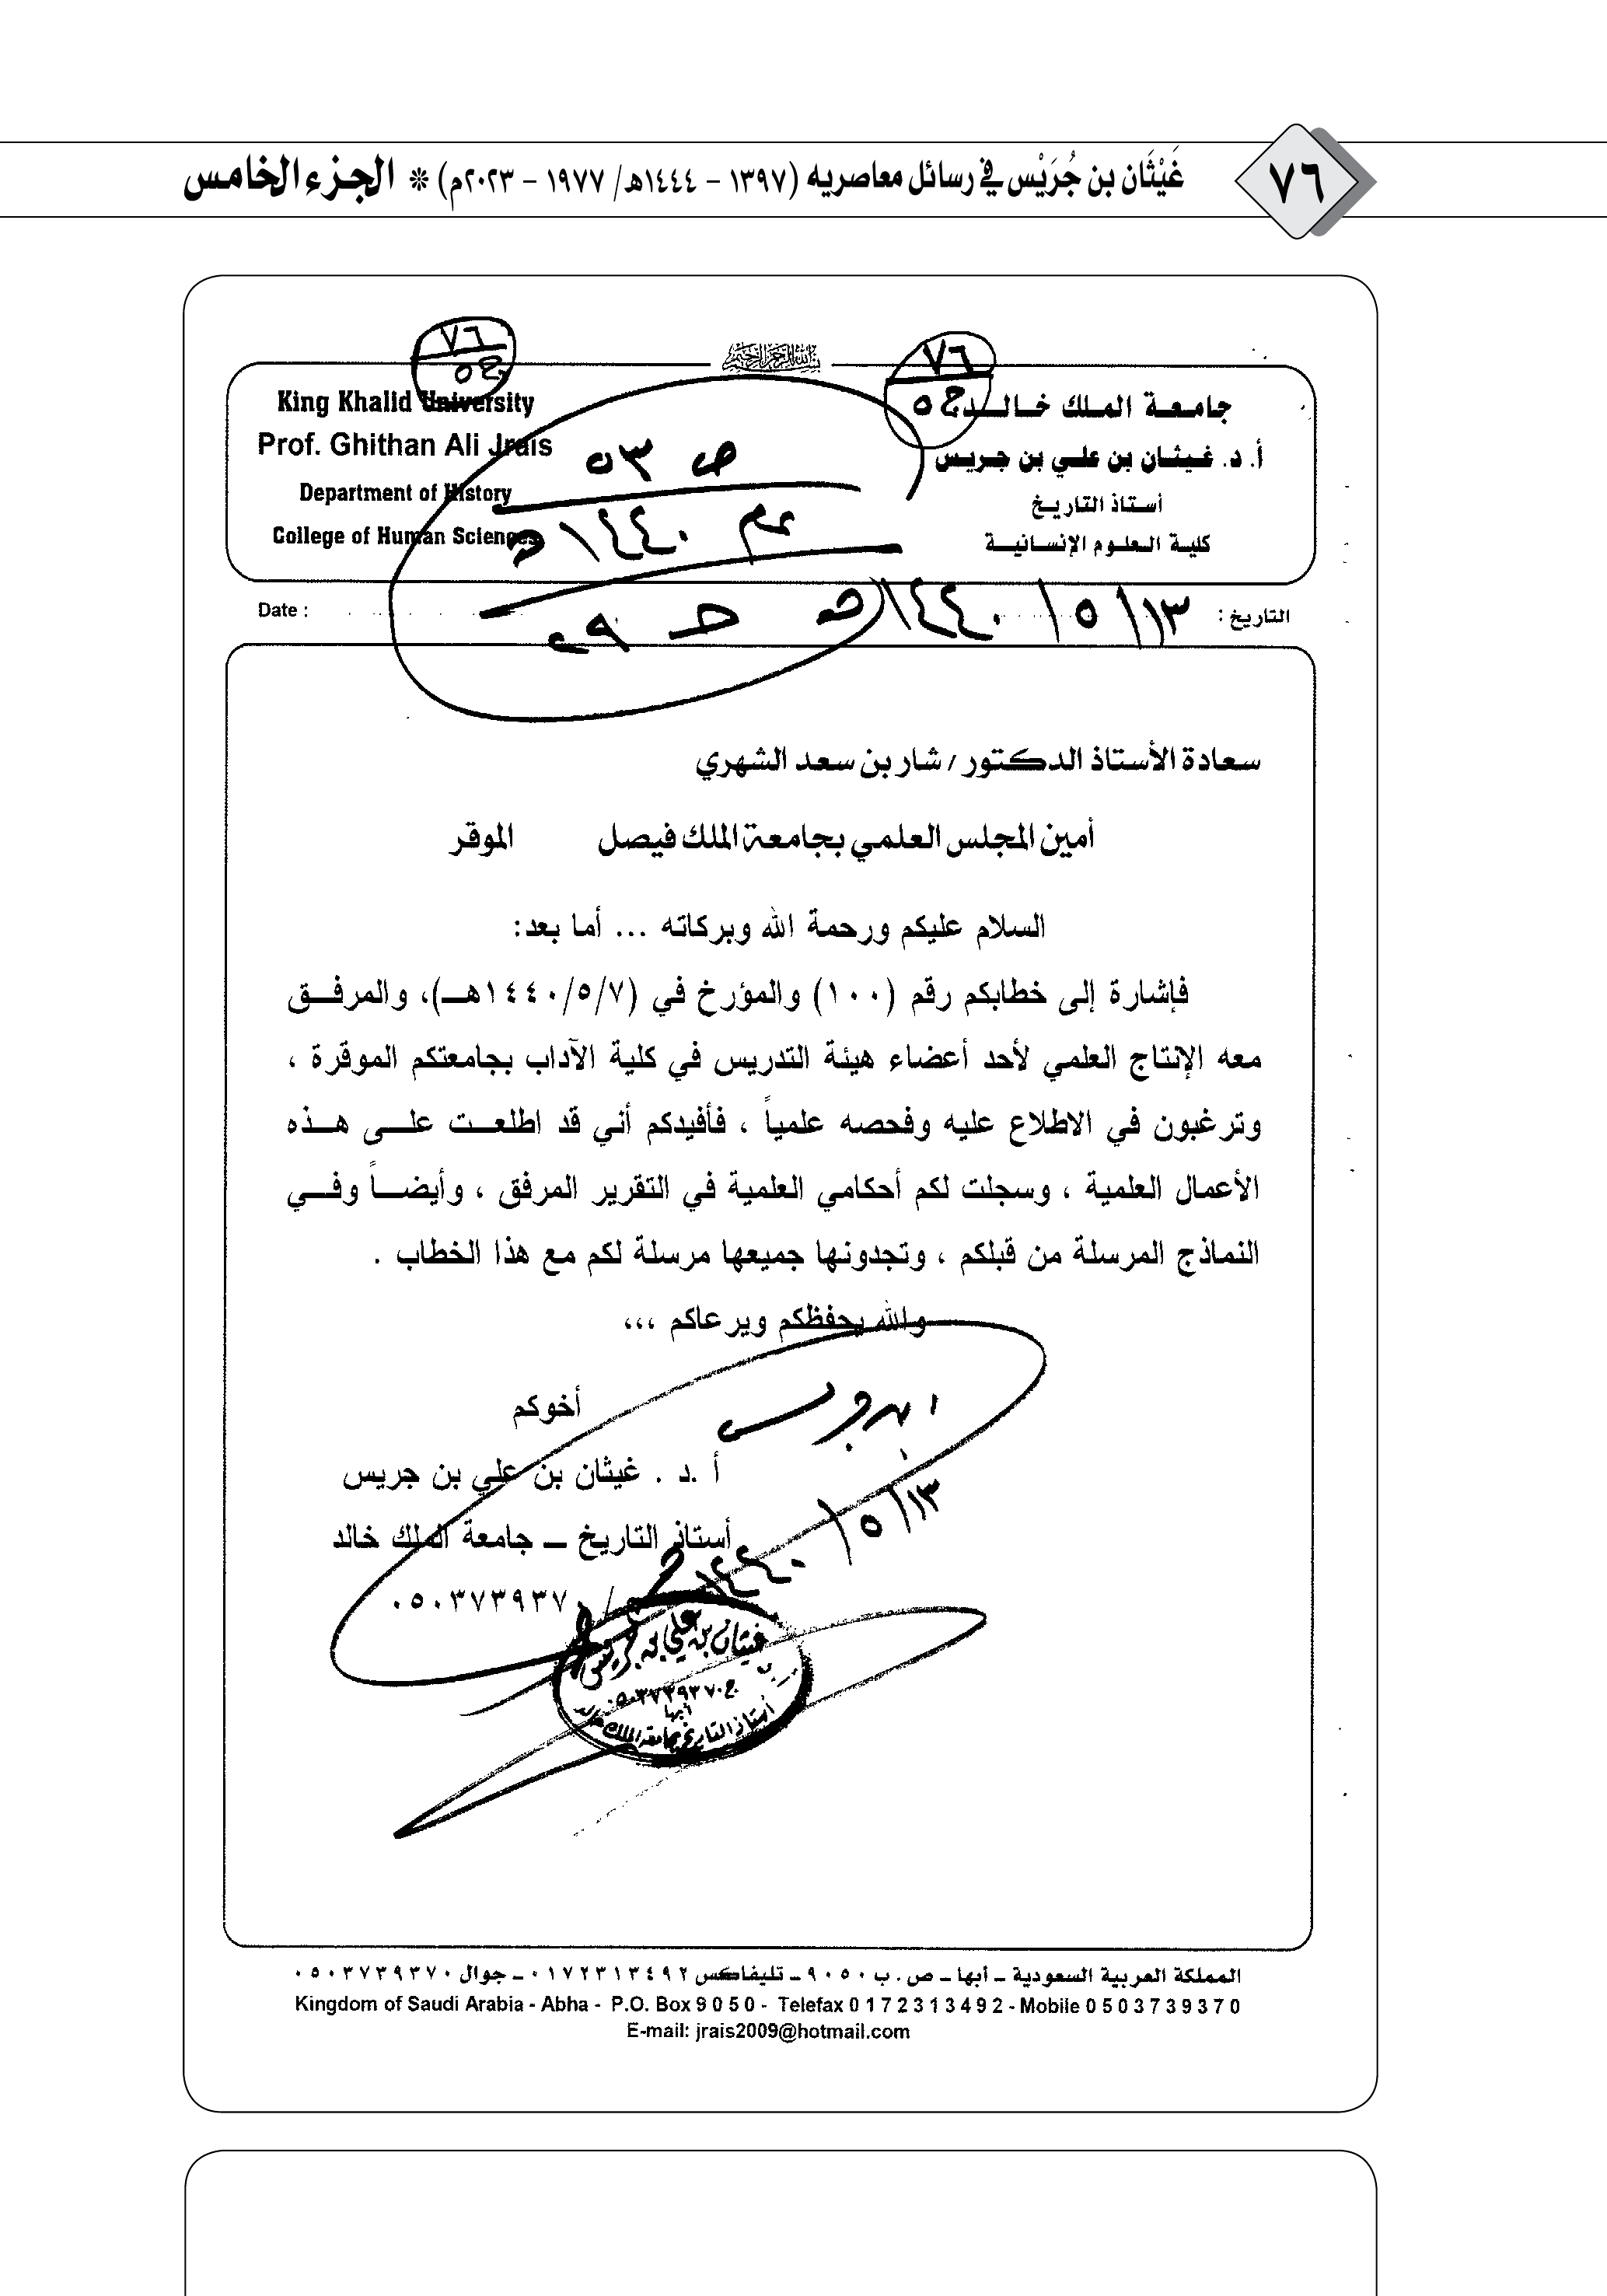 ٧٦
غَيْثَان بن جُرَيْس في رسائل معاصريه (١٣٩٧ – ١٤٤٤هـ/ ١٩٧٧ – ٢٠٢٣م) * الجزء الخامس
بسم الله الرحمن الرحيم
٧٦
ج٥
٧٦
ج٥
جامعة الملك خالد
أ. د. غيثان بن علي بن جريس
أستاذ التاريخ
كلية العلوم الإنسانية
King Khalid University
Prof. Ghithan Ali Jrais
Department of History
College of Human Sciences
ص ٥٣
١٤٤٠هـ
التاريخ : ١٣/ ٥/ ١٤٤٠هـ
Date :
سعادة الأستاذ الدكتور / شار بن سعد الشهري
أمين المجلس العلمي بجامعة الملك فيصل الموقر
السلام عليكم ورحمة الله وبركاته ... أما بعد:
فإشارة إلى خطابكم رقم (١٠٠) والمؤرخ في (١٤٤٠/٥/٧هـ)، والمرفق
معه الإنتاج العلمي لأحد أعضاء هيئة التدريس في كلية الآداب بجامعتكم الموقرة ،
وترغبون في الاطلاع عليه وفحصه علمياً ، فأفيدكم أني قد اطلعت على هذه
الأعمال العلمية ، وسجلت لكم أحكامي العلمية في التقرير المرفق ، وأيضاً وفي
النماذج المرسلة من قبلكم ، وتجدونها جميعها مرسلة لكم مع هذا الخطاب .
والله يحفظكم ويرعاكم ،،،
أخوكم
ابن جريس
أ .د . غيثان بن علي بن جريس
١٣/ ٥/ ١٤٤٠
أستاذ التاريخ – جامعة الملك خالد
/ ٠٥٠٣٧٣٩٣٧٠
غيثان بن علي بن جريس
ج ٠٥٠٣٧٣٩٣٧٠
أبها
أستاذ التاريخ بجامعة الملك خالد
المملكة العربية السعودية – أبها – ص . ب ٩٠٥٠ – تليفاكس ٠١٧٢٣١٣٤٩٢ – جوال ٠٥٠٣٧٣٩٣٧٠
Kingdom of Saudi Arabia - Abha - P.O. Box 9 0 5 0 - Telefax 0 1 7 2 3 1 3 4 9 2 - Mobile 0 5 0 3 7 3 9 3 7 0
E-mail: jrais2009@hotmail.com